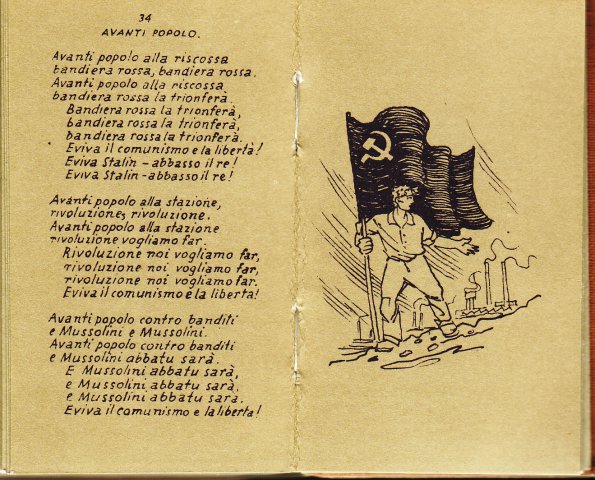 34
AVANTI POPOLO.
Avanti popolo alla riscossa
bandiera rossa, bandiera rossa.
Avanti popolo alla riscossa
bandiera rossa la trionferà.
Bandiera rossa la trionferà,
bandiera rossa la trionferà,
bandiera rossa la trionferà.
Eviva il comunismo e la libertà!
Eviva Stalin - abbasso il re!
Eviva Stalin - abbasso il re!
Avanti popolo alla stazione,
rivoluzione, rivoluzione.
Avanti popolo alla stazione
rivoluzione vogliamo far.
Rivoluzione noi vogliamo far,
rivoluzione noi vogliamo far,
rivoluzione noi vogliamo far.
Eviva il comunismo e la libertà!
Avanti popolo contro banditi
e Mussolini e Mussolini.
Avanti popolo contro banditi
e Mussolini abbatu sarà.
E Mussolini abbatu sarà,
e Mussolini abbatu sarà,
e Mussolini abbatu sarà.
Eviva il comunismo e la liberta!